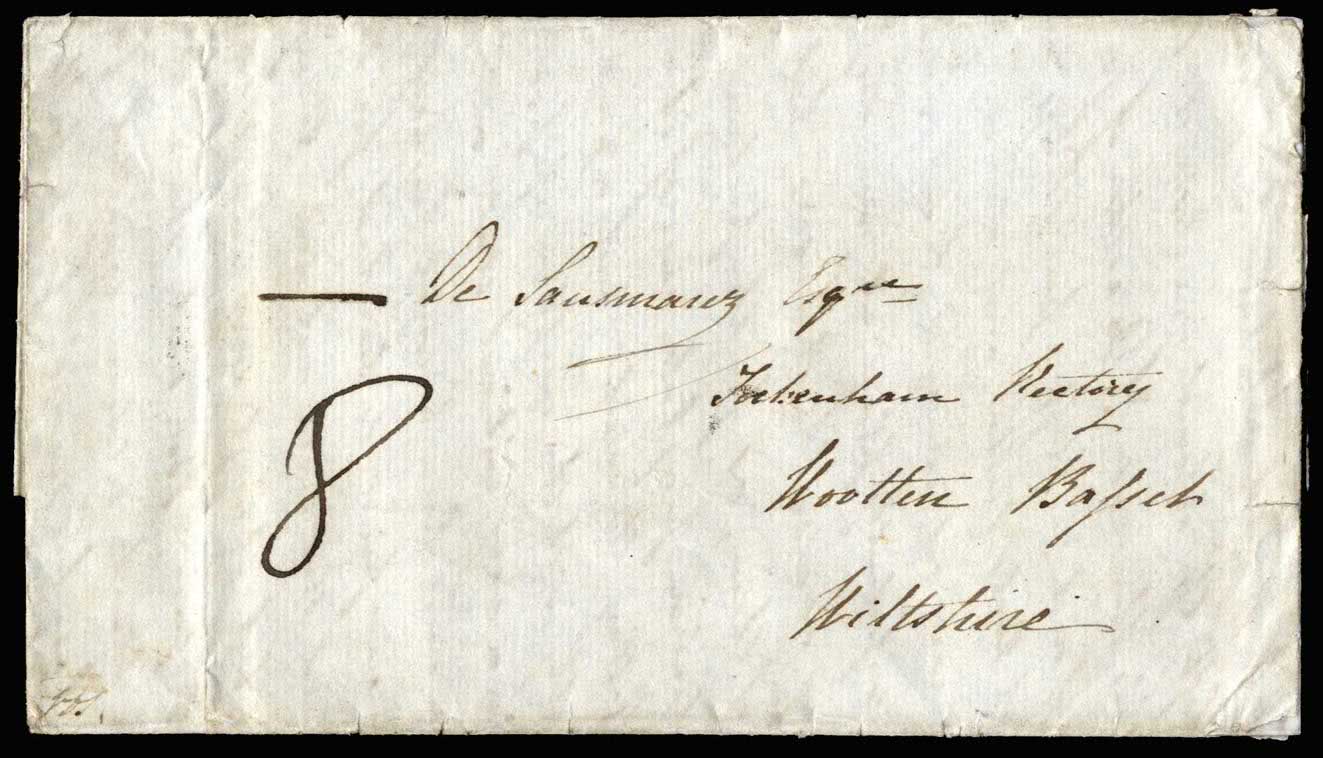 — De Sausmarez Esqre
Tockenham Rectory
Wootten Basset
Wiltshire
8